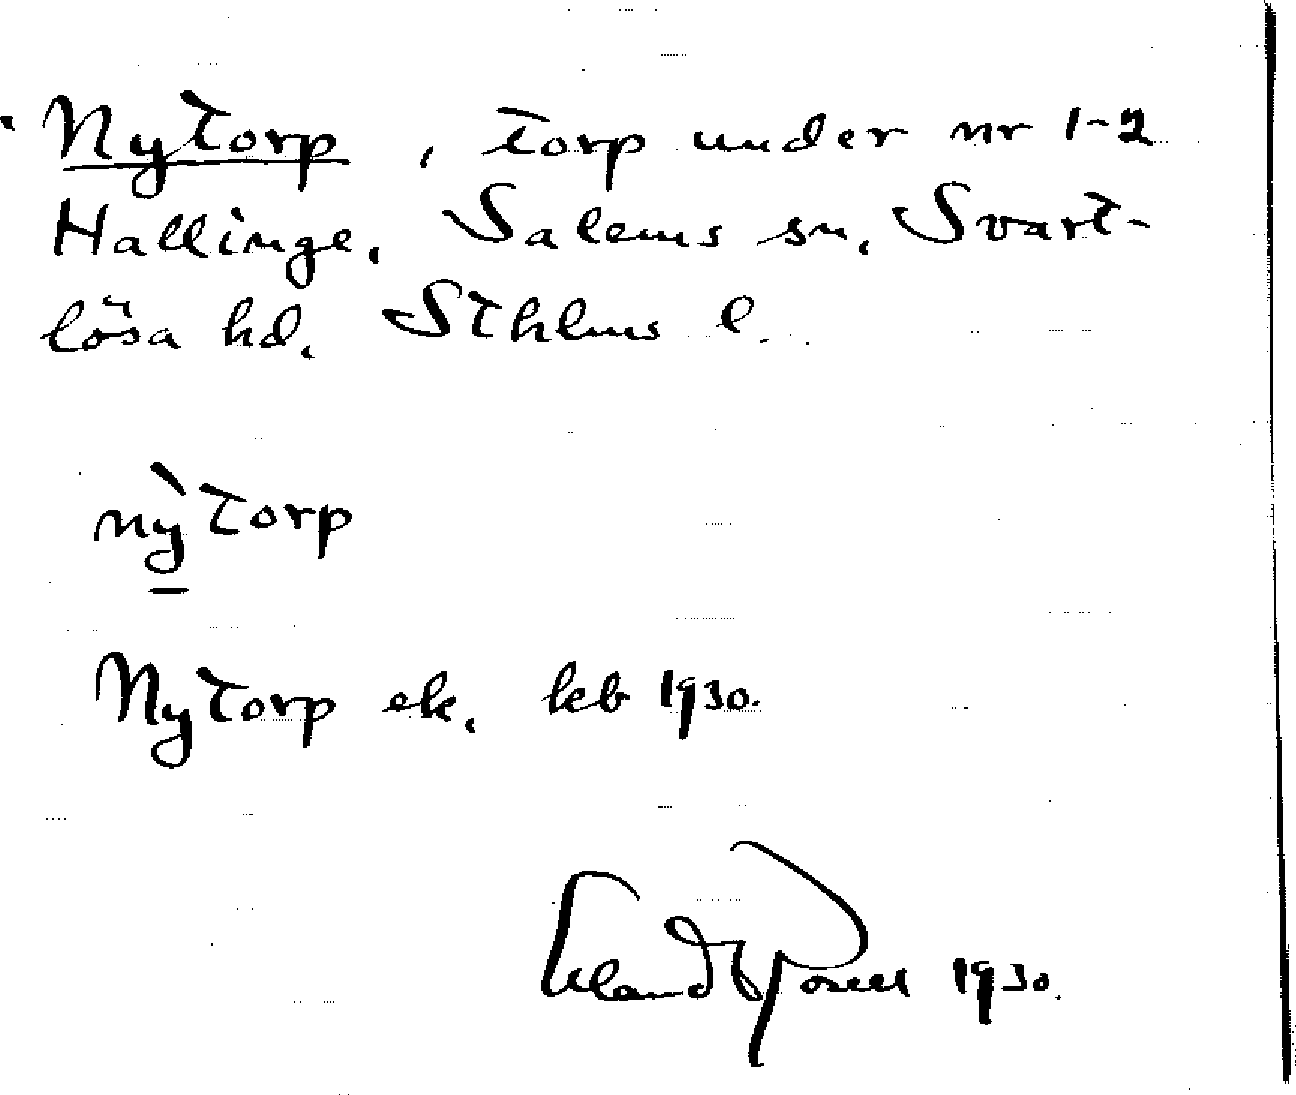 Nytorp, torp under nr 1-2
Hallinge, Salems sn, Svart-
lösa hd, Sthlms l.
nỳtorp
Nytorp ek. kb 1930.
Erland Rosell 1930.